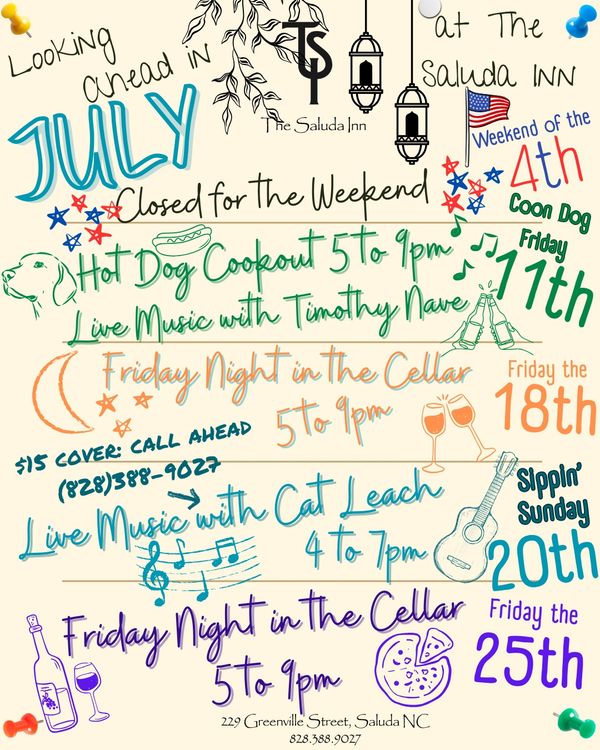 Looking ahead in
JULY
TSI
The Saluda Inn
at The
Saluda INN
Weekend of the
4th
Closed for the Weekend
Coon Dog
Friday
11th
Hot Dog Cookout 5 to 9pm
Live Music with Timothy Nave
Friday Night in the Cellar
5 to 9pm
Friday the
18th
$15 COVER: CALL AHEAD
(828)388-9027
Live Music with Cat Leach
4 to 7pm
Sippin'
Sunday
20th
Friday Night in the Cellar
5 to 9pm
Friday the
25th
229 Greenville Street, Saluda NC
828.388.9027